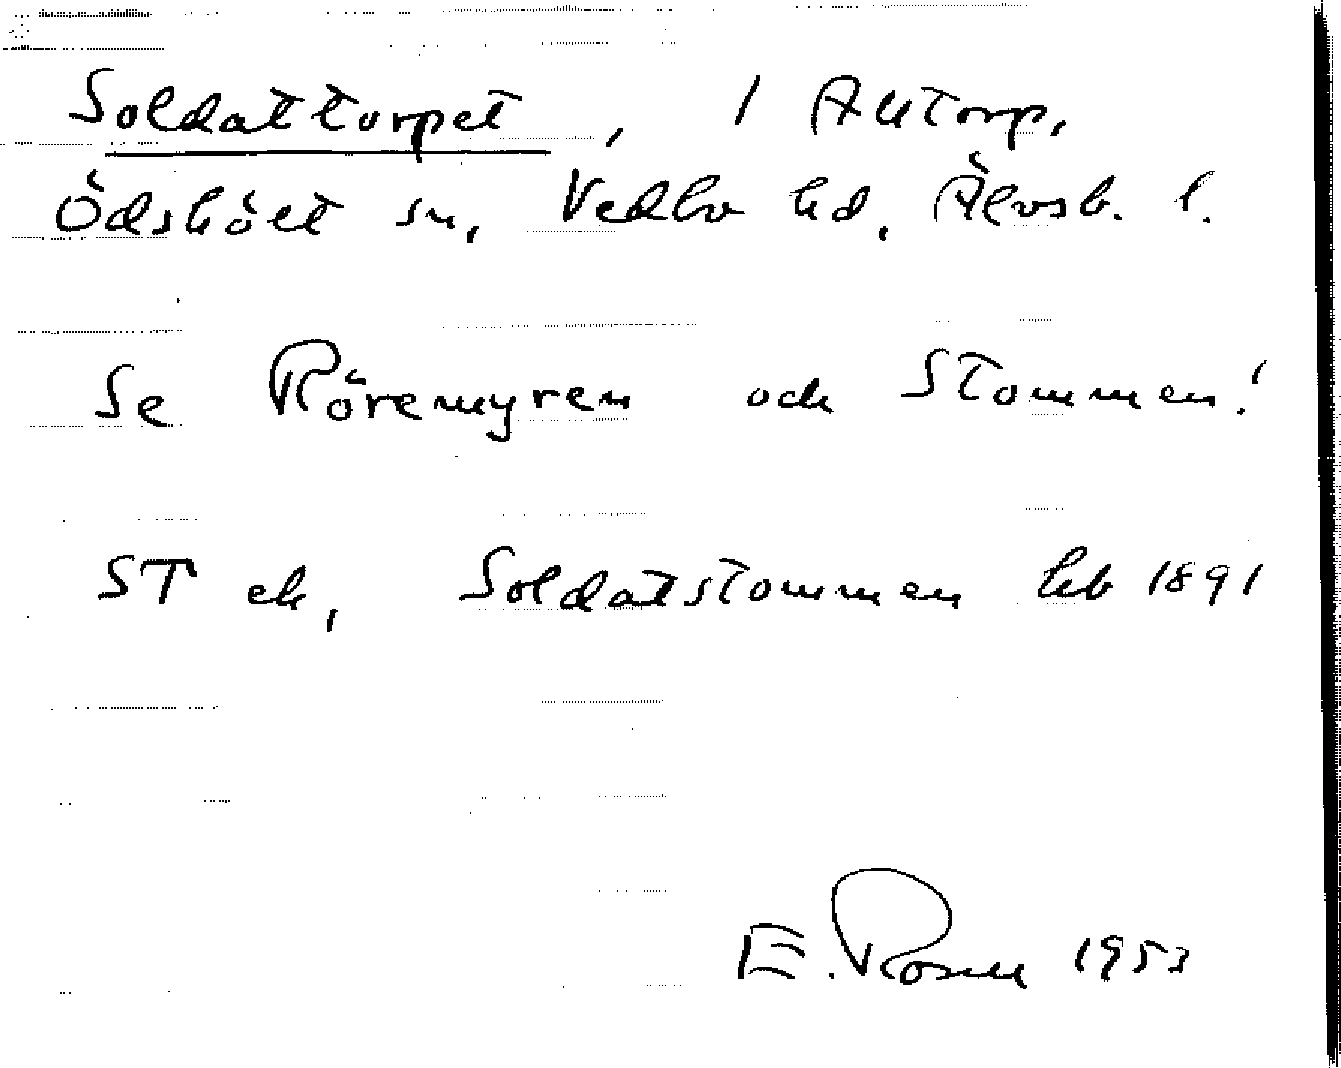 Soldattorpet, 1 Autorp,
Ödskölt sn, Vedbo hd, Älvsb. l.
Se Röremyren och Stommen!
ST ek, Soldatstommen hkb 1891
E. Rosell 1953